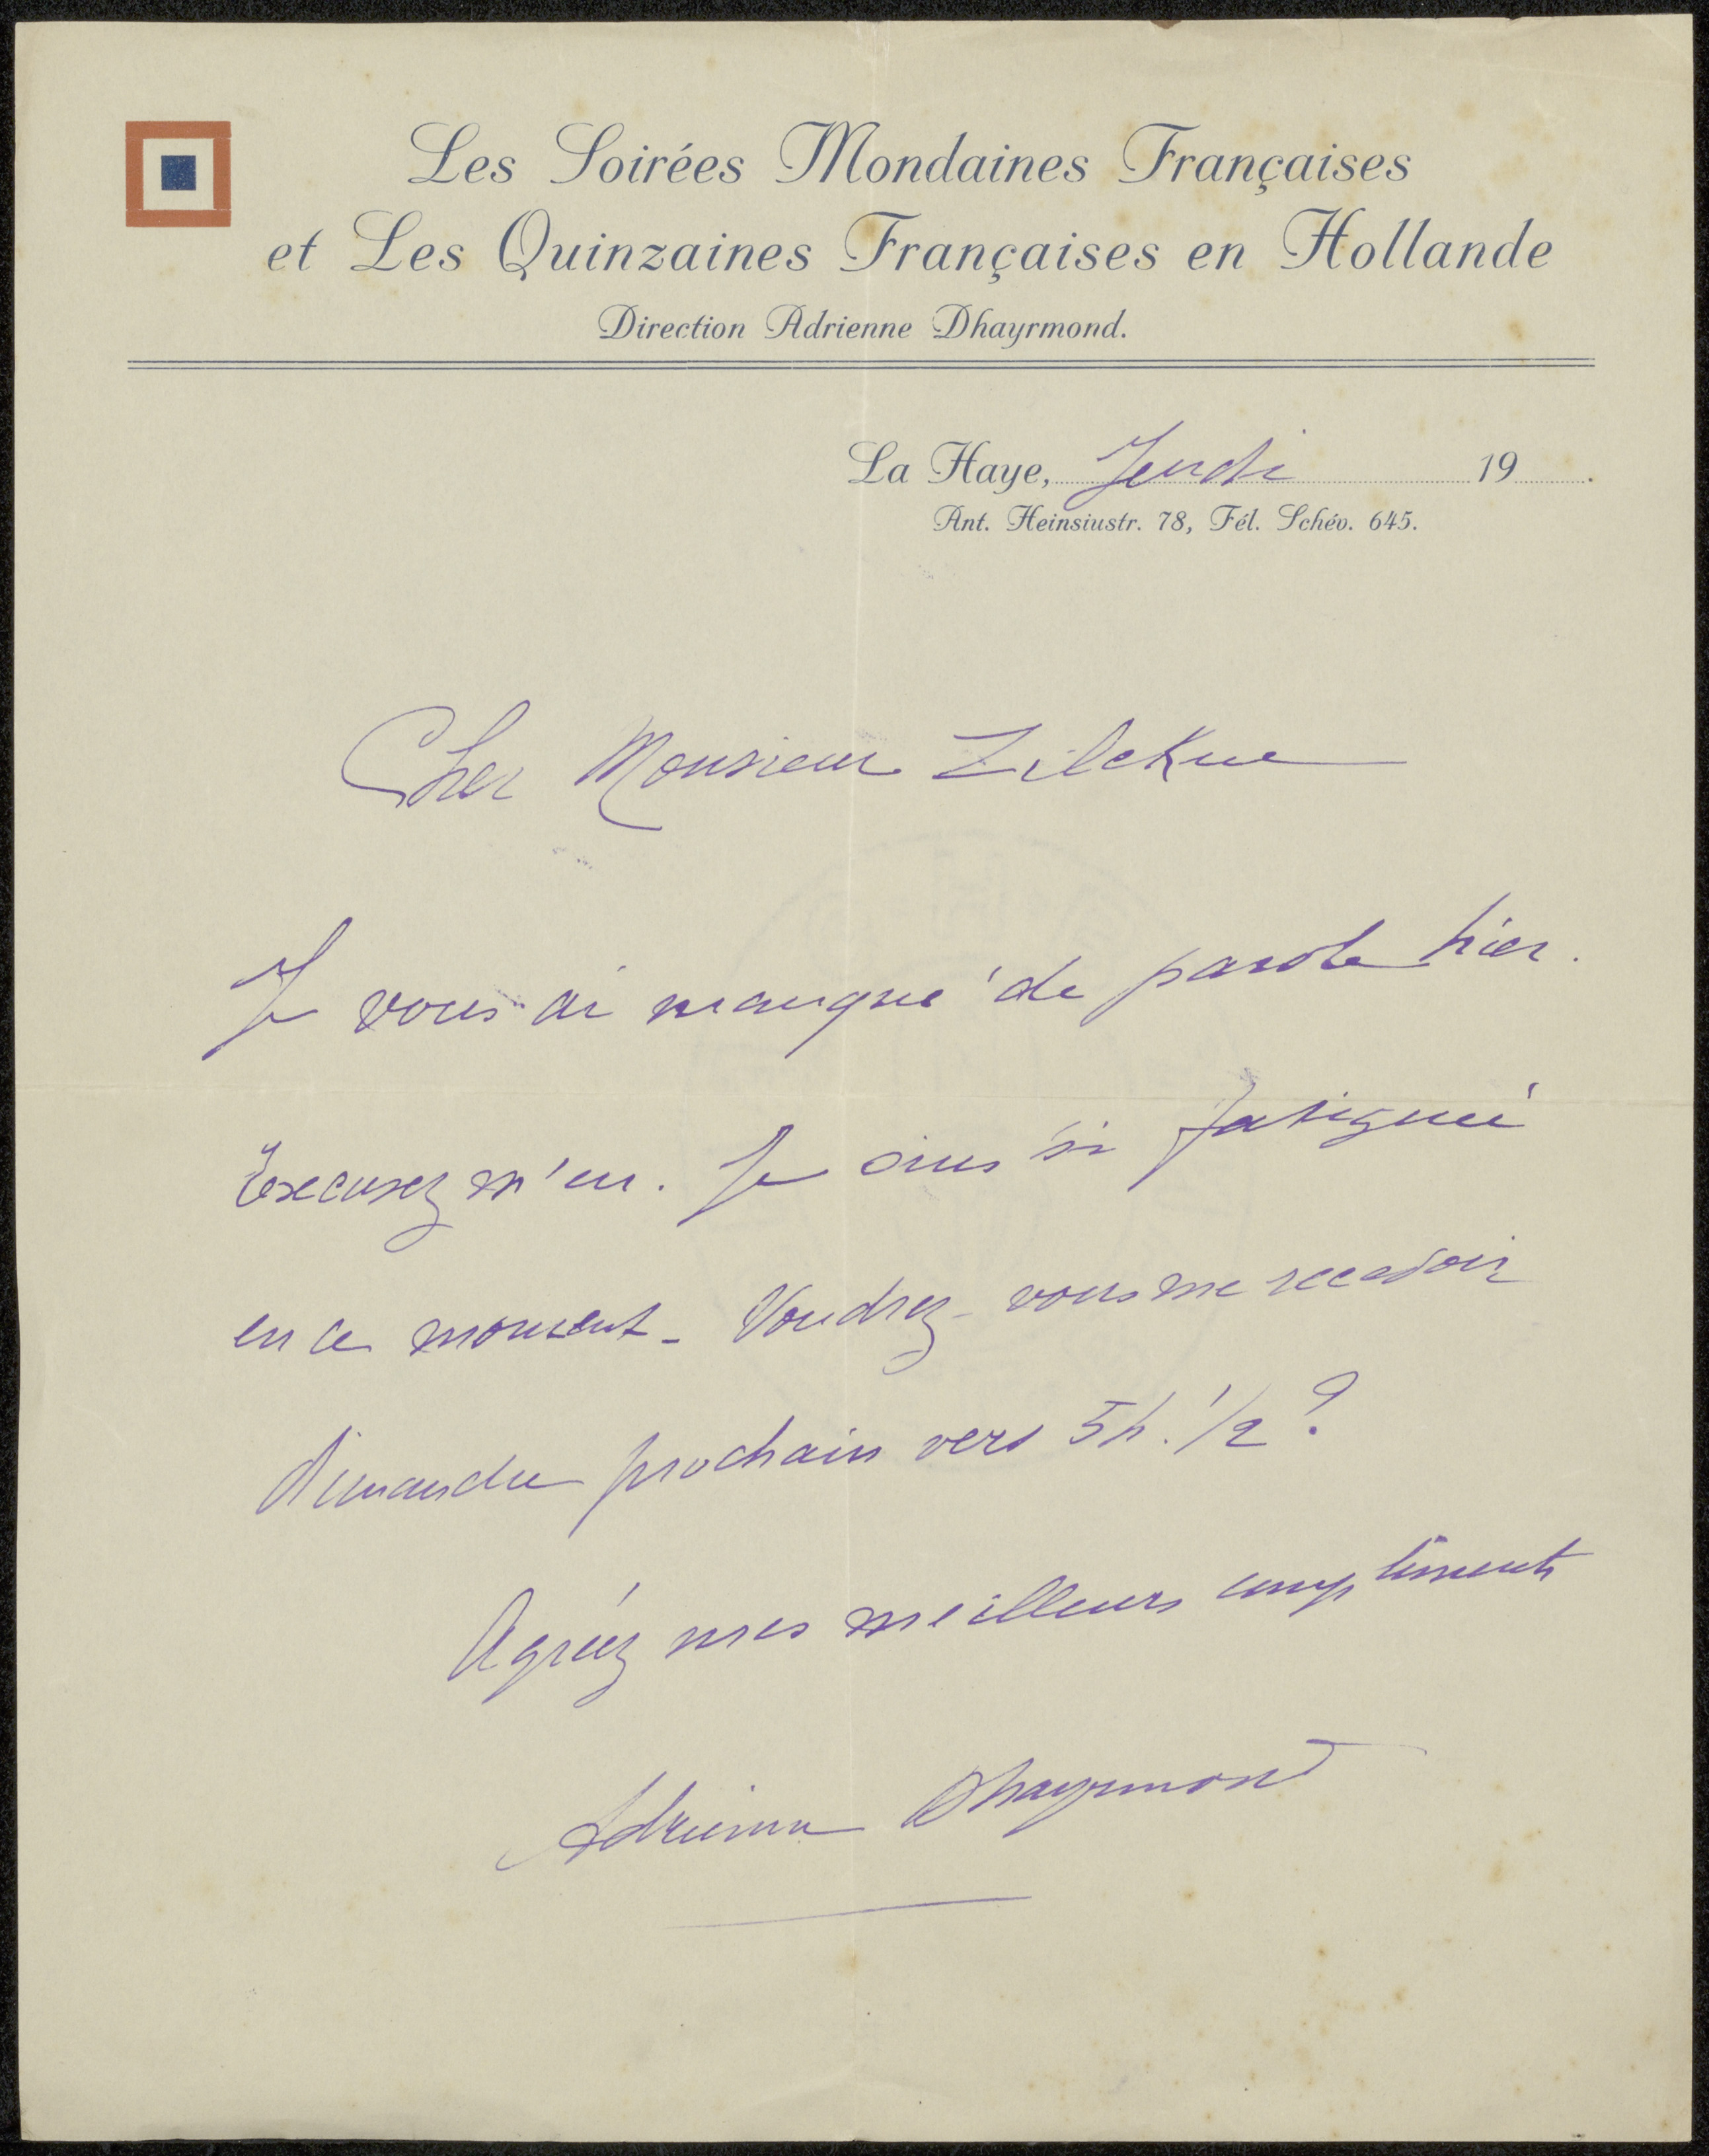 Les Soirées Mondaines Françaises
et Les Quinzaines Françaises en Hollande
Direction Adrienne Dhayrmond.
La Haye, Jeudi 19 .
Ant. Heinsiustr. 78, Tél. Schév. 645.
Cher Monsieur Zilcken
Je vous ai manqué de parole hier.
Excusez m'en. Je suis si fatiguée
en ce moment - Voudrez-vous me recevoir
dimanche prochain vers 5h. 1/2 ?
Agréez mes meilleurs compliments
Adrienne Dhayrmond